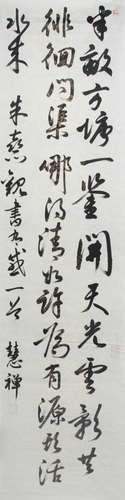 半畝方塘一鑒開天光雲影共
徘徊問渠哪得清如許為有源頭活
水來 朱熹觀書有感一首 慧禪